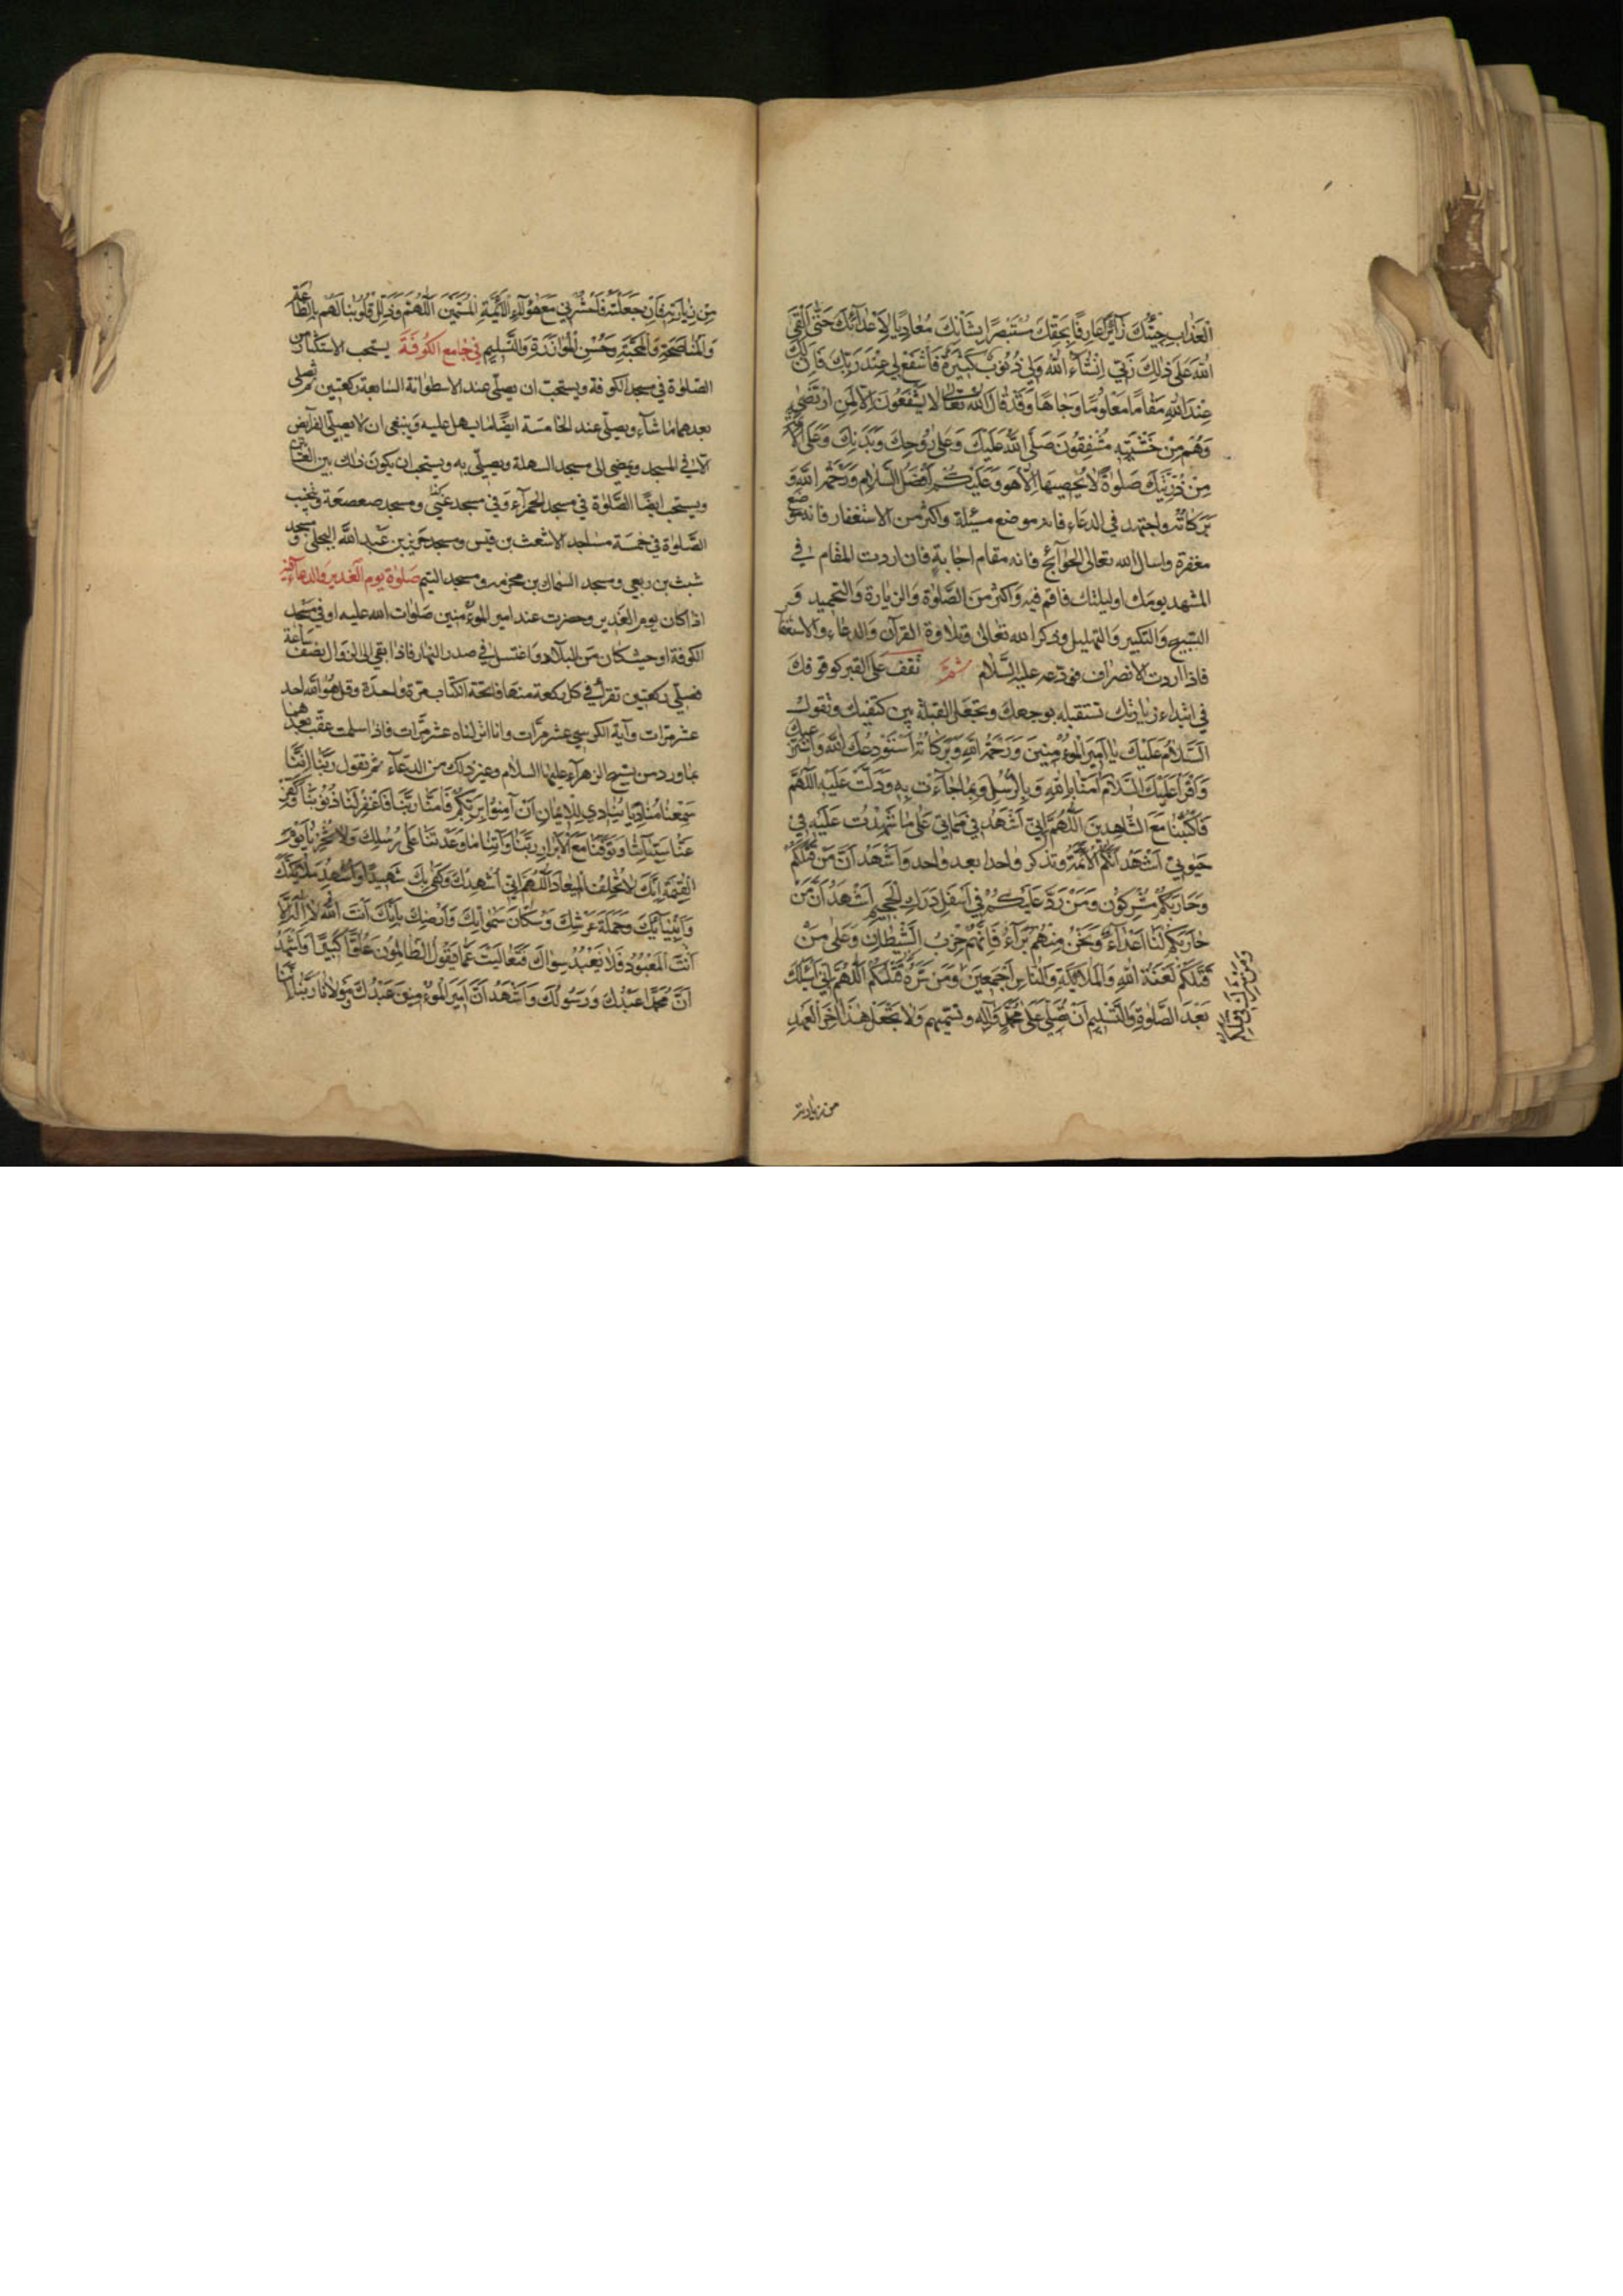 العَذابِ جِئْتُكَ زآئِرًا عارِفًا بِحَقِّكَ مُسْتَبْصِرًا بِشَأْنِكَ مُعادِيًا لِأَعْدآئِكَ حَتّى اَلْقَى
اللهَ عَلى ذلِكَ رَبّي اِنْشاءَ اللهُ وَلي ذُنُوبٌ كَثيرَةٌ فَاشْفَعْ لي عِنْدَ رَبِّكَ فَاِنَّ لَكَ
عِنْدَ اللهِ مَقامًا مَعْلُومًا وَجاهًا وَقَدْ قالَ اللهُ تَعالى لا يَشْفَعُونَ اِلّا لِمَنِ ارْتَضى
وَهُمْ مِنْ خَشْيَتِهِ مُشْفِقُونَ صَلَّى اللهُ عَلَيْكَ وَعَلى رُوحِكَ وَبَدَنِكَ وَعَلَى الْاَ
مِنْ ذُرِّيَّتِكَ صَلوةً لا يُحْصيها اِلّا هُوَ وَعَلَيْكُمْ اَفْضَلُ السَّلامِ وَرَحْمَةُ اللهِ وَ
بَرَكاتُهُ واجتهد في الدعاء فانه موضع مسئلة واكثر من الاستغفار فانه موضع
مغفرة واسال الله تعالى الحوآئج فانه مقام اجابة فان اردت المقام في
المشهد يومك اوليلتك فاقم فيه واكثر من الصَّلوة والزيارة والتحميد و
التسبيح والتكبير والتهليل وذكر الله تعالى وتلاوة القرآن والدعاء والاستغفا
فاذا اردت الانصراف فودّعه عليه السّلام ثمّ تقف على القبر كوقوفك
في ابتداء زيارتك تستقبله بوجهك وتجعل القبلة بين كتفيك وتقول
السَّلامُ عَلَيْكَ يا اَميرَ المُؤْمِنينَ وَرَحْمَةُ اللهِ وَبَرَكاتُهُ اَسْتَوْدِعُكَ اللهَ وَاَسْتَرْعيكَ
وَاَقْرَأُ عَلَيْكَ السَّلامَ آمَنّا بِاللهِ وَبِالرُّسُلِ وَبِما جاءَتْ بِهِ وَدَلَّتْ عَلَيْهِ اَللّهُمَّ
فَاكْتُبْنا مَعَ الشّاهِدينَ اَللّهُمَّ اِنّي اَشْهَدُ في مَماتي عَلى ما شَهِدْتُ عَلَيْهِ في
حَيوتي اَشْهَدُ اَنَّكُمُ الْاَئِمَّةُ وتذكر واحدا بعد واحد وَاَشْهَدُ اَنَّ مَنْ قَتَلَكُمْ
وَحارَبَكُمْ مُشْرِكُونَ وَمَنْ رَدَّ عَلَيْكُمْ في اَسْفَلِ دَرَكِ الْجَحيمِ اَشْهَدُ اَنَّ مَنْ
حارَبَكُمْ لَنا اَعْداءٌ وَنَحْنُ مِنْهُمْ بُرَآءُ فَاِنَّهُمْ حِزْبُ الشَّيْطانِ وَعَلى مَنْ
قَتَلَكُمْ لَعْنَةُ اللهِ وَالْمَلائِكَةِ وَالنّاسِ اَجْمَعينَ وَمَنْ سَرَّهُ قَتْلُكُمْ اَللّهُمَّ اِنّي اَسْئَلُكَ
بَعْدَ الصَّلوةِ وَالتَّسْليمِ اَنْ تُصَلِّيَ عَلى مُحَمَّدٍ وَآلِهِ وتسمّيهم وَلا تَجْعَلْ هذا آخِرَ الْعَهْدِ
من زيارته
مِنْ زِيارَتِهِ فَاِنْ جَعَلْتَهُ فَاحْشُرْني مَعَ هؤُلاءِ الْاَئِمَّةِ الْمُسَمَّيْنَ اَللّهُمَّ وَذَلِّلْ قُلُوبَنا لَهُمْ بِالطّاعَةِ
وَالْمُناصَحَةِ وَالْمَحَبَّةِ وَحُسْنِ الْمُوازَرَةِ وَالتَّسْليمِ في جامع الكوفة يستحب الاستكثار من
الصّلوة في مسجد الكوفة ويستحبّ ان يصلّي عند الاسطوانة السابعة ركعتين ثم يصلي
بعدهما ما شاء ويصلّي عند الخامسة ايضًا ويذهل عليه وينبغي ان لا يصلّي الفرآئض
الّا في المسجد ويمضي الى مسجد السهلة ويصلّي به ويستحب ان يكون ذلك بين العشائين
ويستحب ايضًا الصَّلوة في مسجد الحمرآء وفي مسجد غنيّ ومسجد صعصعة وتجنّب
الصّلوة في خمسة مساجد الاشعث بن قيس ومسجد جرير بن عبد الله البجلي ومسجد
شبث بن ربعي ومسجد السّماك بن مخرمه ومسجد التيم صلوة يوم الغدير والدعاء فيه
اذا كان يوم الغدير وحضرت عند امير المؤمنين صلوات الله عليه اوفي مسجد
الكوفة اوحيث كان من البلاد واغتسل في صدر النهار فاذا بقي الى الزوال نصف ساعة
فصلّي ركعتين تقرأ في كل ركعة منها فاتحة الكتاب مرّة واحدة وقل هو الله احد
عشر مرّات وآية الكرسي عشر مرّات وانا انزلناه عشر مرّات فاذا سلمت عقّب بعدهما
بما ورد من تسبيح الزهرآء عليها السلام وغير ذلك من الدعآء ثمّ تقول رَبَّنا اِنَّنا
سَمِعْنا مُنادِيًا يُنادي لِلْايمانِ اَنْ آمِنُوا بِرَبِّكُمْ فَآمَنّا رَبَّنا فَاغْفِرْ لَنا ذُنُوبَنا وَكَفِّرْ
عَنّا سَيِّآتِنا وَتَوَفَّنا مَعَ الْاَبْرارِ رَبَّنا وَآتِنا ما وَعَدْتَنا عَلى رُسُلِكَ وَلا تُخْزِنا يَوْمَ
الْقِيمَةِ اِنَّكَ لا تُخْلِفُ الْميعادَ اَللّهُمَّ اِنّي اُشْهِدُكَ وَكَفى بِكَ شَهيدًا وَاُشْهِدُ مَلائِكَتَكَ
وَاَنْبِيآئَكَ وَحَمَلَةَ عَرْشِكَ وَسُكّانَ سَمواتِكَ وَاَرْضِكَ بِاَنَّكَ اَنْتَ اللهُ لا اِلهَ اِلّا
اَنْتَ الْمَعْبُودُ فَلا يُعْبَدُ سِواكَ فَتَعالَيْتَ عَمّا يَقُولُ الظّالِمُونَ عُلُوًّا كَبيرًا وَاَشْهَدُ
اَنَّ مُحَمَّدًا عَبْدُكَ وَرَسُولُكَ وَاَشْهَدُ اَنَّ اَميرَ الْمُؤْمِنينَ عَبْدُكَ وَمَوْلانا رَبَّنا اِنَّنا